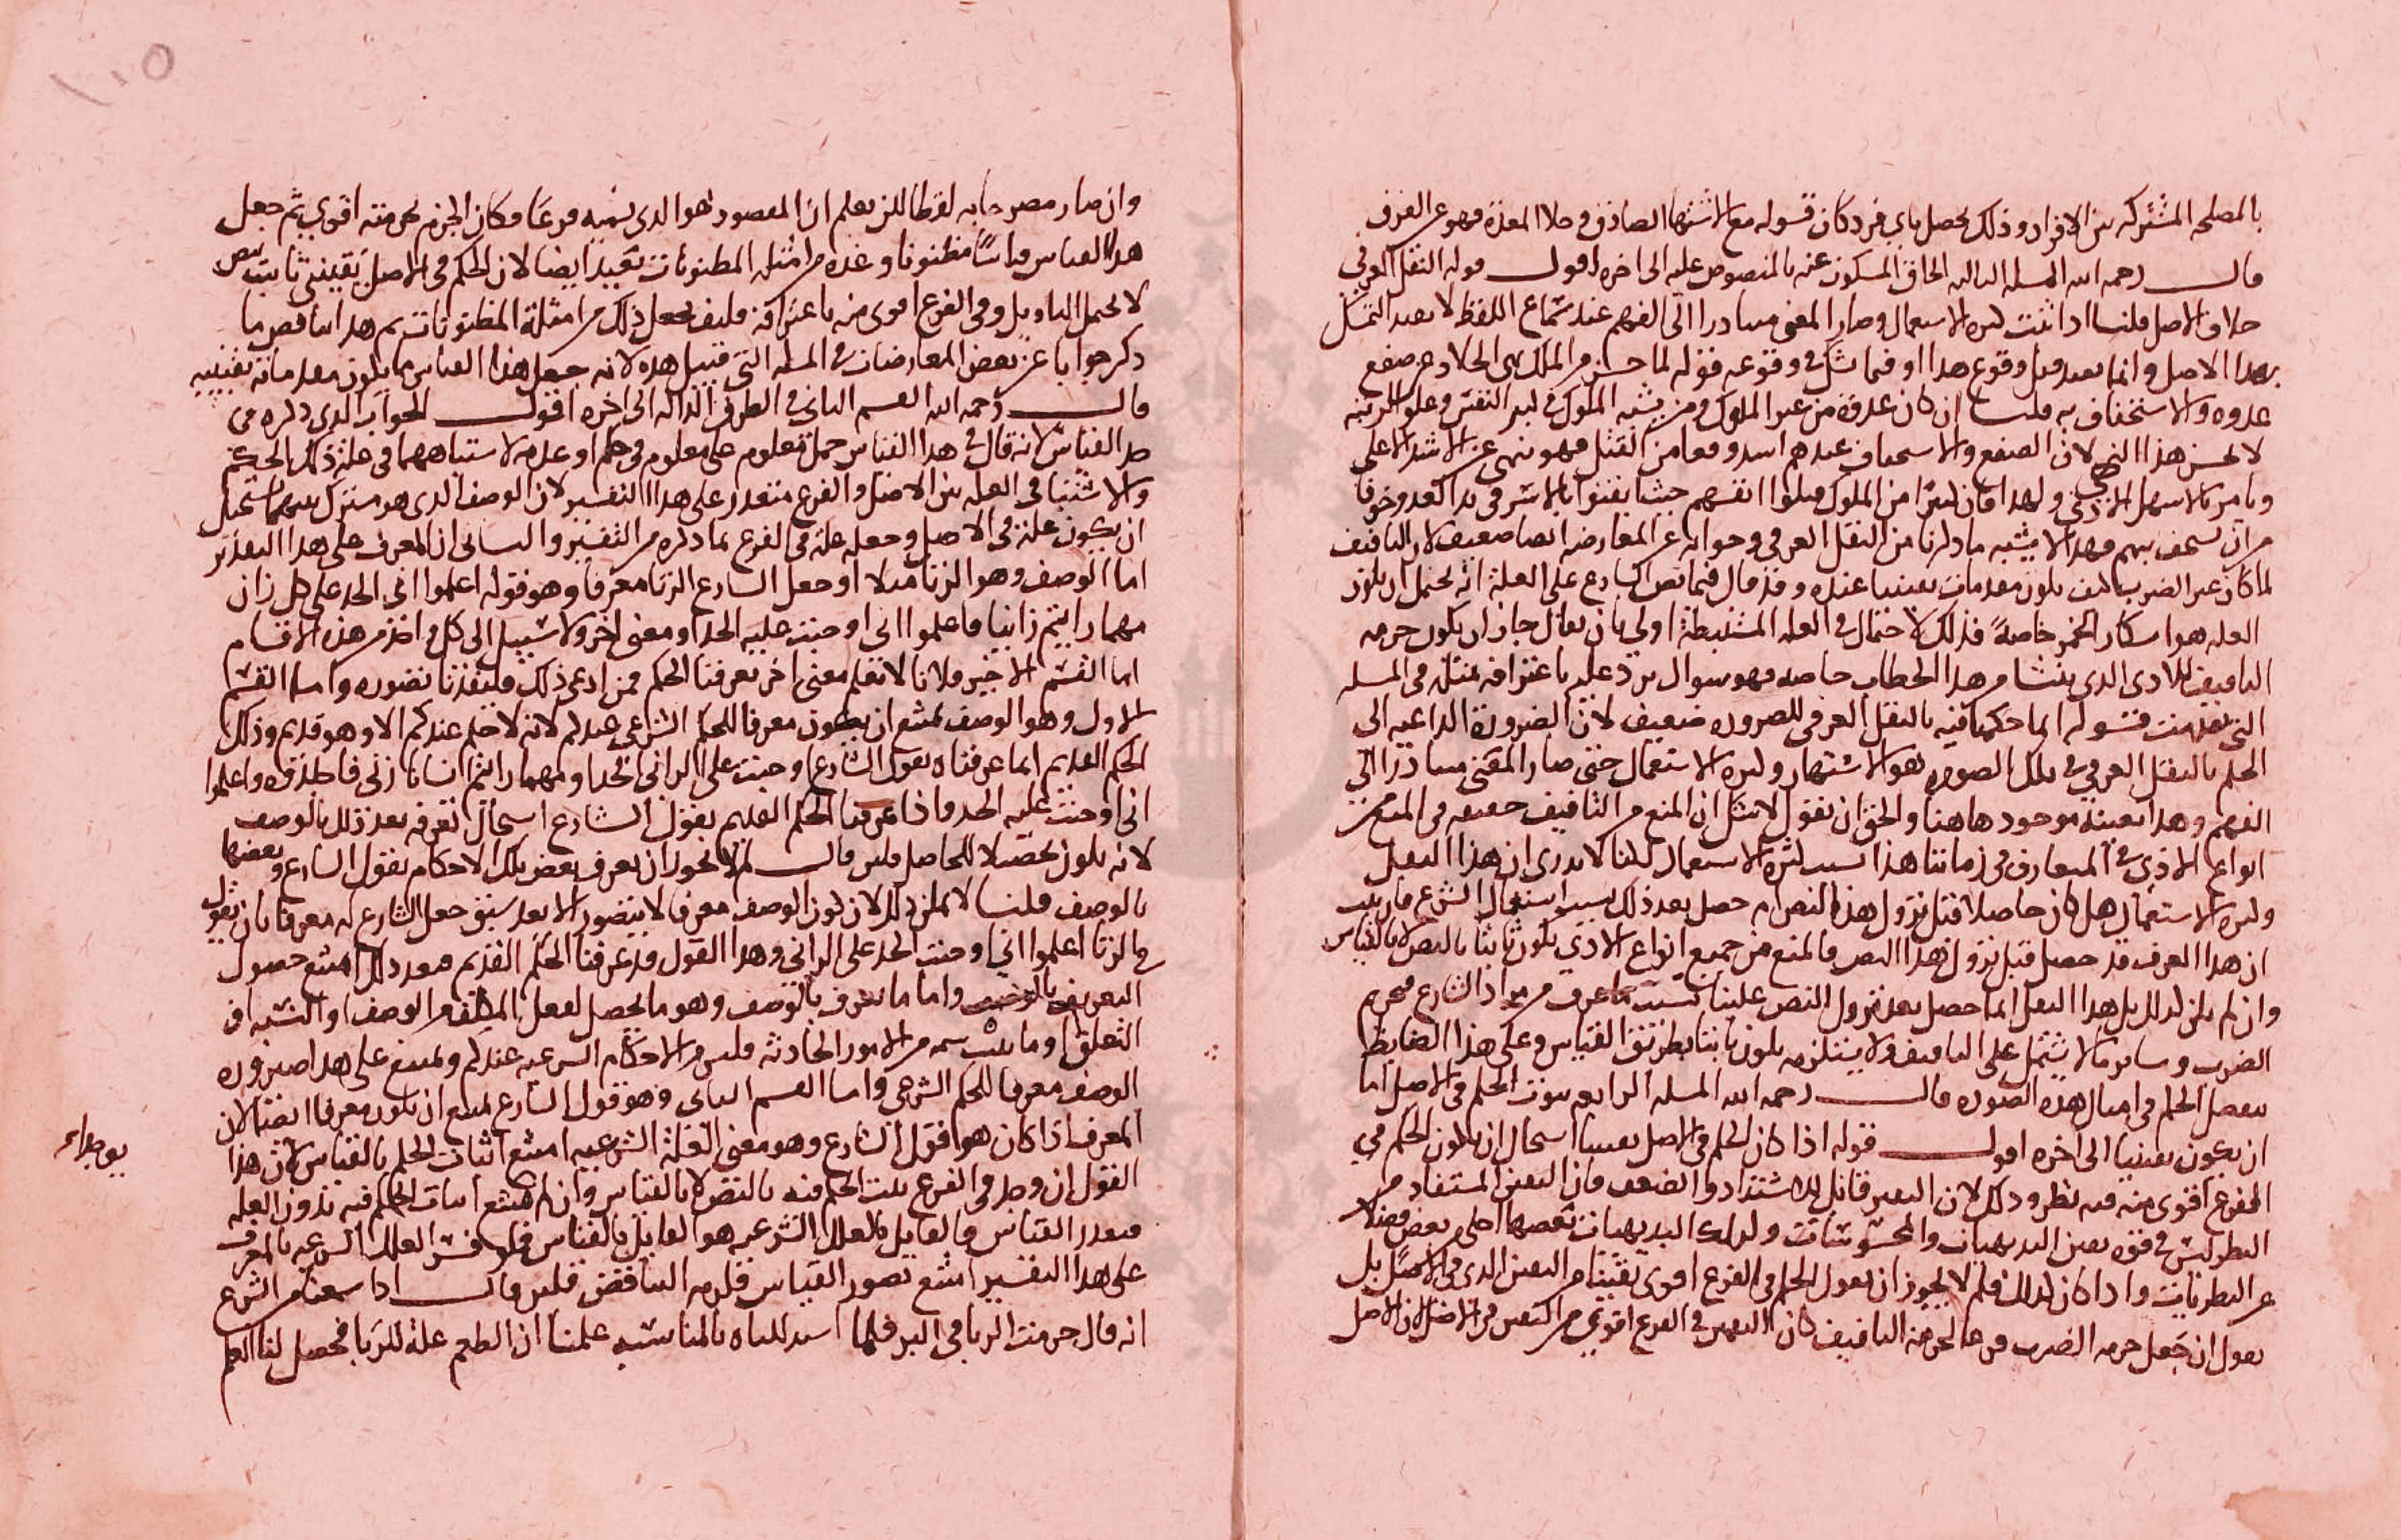 بالمصلحه المشتركه بين الافراد وذلك يحصل باي فرد كان قوله مع الاشتهاا لصادق وحلا المعدة فهو عن الغرف
قال رحمه الله المسله الثالثه الحاق المسكوت عنه بالمنصوص عليه الى اخره اقول قوله النقل العرفي
خلاف الاصل قلنا اذا ثبت كثره الاستعمال وصار المعنى متبادرا الى الفهم عند سماع اللفظ لا يفيد التمسك
بهذا الاصل وانما يفيد قبل وقوع هذا او فيما شك في وقوعه قوله لما حسن من الملك نهى الجلاد عن صفع
عدوه والاستخفاف به قلنا ان كان عدوه من غير الملوك ومن يشبه الملوك في كبر النفس وعلو الرتبه
لا يحسن هذا النهى لان الصفع والاستخفاف عندهم اشد وقعا من القتل فهو نهي عن الاشد الاعلى
ويامر بالاسهل الادنى ولهذا فان كثيرا من الملوك قتلوا انفسهم حيث ايقنوا بالاسر في يد العدو خوفا
من ان يستخف بهم فهذا لا يشبه ما ذكرنا من النقل العرفي وجوابه عن المعارضه ايضا ضعيف لان التافيف
لما كان غير الضرب كيف يكون مقدمات يقينيا عنده وقد قال فيما نص الشارع على العلة انه يحتمل ان يكون
العله هو اسكار الخمر خاصة فذلك الاحتمال في العله المستنبطة اولى بان يقال جاز ان يكون حرمه
التافيف للاذى الذي ينشا من هذا الخطاب خاصه فهو سوال يرد عليه باعترافه بمثله في المسله
التي تقدمت قوله انما حكمنا فيه بالنقل العرفي للضروره ضعيف لان الضرورة الداعيه الى
الحكم بالنقل العرفي في تلك الصوره هو الاشتهار وكثره الاستعمال حتى صار المعنى متبادرا الى
الفهم وهذا بعينه موجود هاهنا والحق ان نقول لا شك ان المنع من التافيف حقيقه في المنع من
انواع الاذى في المتعارف في زماننا هذا بسبب كثرة الاستعمال لكنا لا ندرى ان هذا النقل
وكثره الاستعمال هل كان حاصلا قبل نزول هذا النص ام حصل بعد ذلك بسبب استعمال الشرع فان ثبت
ان هذا العرف قد حصل قبل نزول هذا النص فالمنع من جميع انواع الاذى يكون ثابتا بالنص لا بالقياس
وان لم يكن كذلك بل هذا النقل انما حصل بعد نزول النص علينا بسبب ما عرف من مراد الشارع فتحريم
الضرب وساير ما لا يشتمل على التافيف ولا يستلزمه يكون ثابتا بطريق القياس وعلى هذا الضابط
تفصل الحكم في امثال هذه الصوره قال رحمه الله المسله الرابعه ثبوت الحكم في الاصل اما
ان يكون يقينيا الى اخره اقول قوله اذا كان الحكم في الاصل يقينيا استحال ان يكون الحكم في
الفرع اقوى منه فيه نظر وذلك لان اليقين قابل للاشتداد والضعف فان اليقين المستفاد من
النظر ليس في قوه يقين البديهيات والمحسوسات وكذلك البديهيات بعضها اجلى من بعض فضلا
عن النظريات واذا كان كذلك فلم لا يجوز ان يقول الحكم في الفرع اقوى يقينا من اليقين الذي في الاصل بل
نقول ان جعل حرمه الضرب فرعا لحرمة التافيف كان اليقين في الفرع اقوى من اليقين في الاصل لان الاصل
١٠٥
وان صار مصرحا به لفظا لكن يعلم ان المقصود هو الذي نسميه فرعا فكان الجزم بحرمته اقوى ثم جعل
هذا القياس قياسا مظنونا وعده من امثله المظنونات بعيد ايضا لان الحكم في الاصل يقيني ثابت بنص
لا يحتمل التاويل وفي الفرع اقوى منه باعترافه فكيف يجعل ذلك من امثلة المظنونات ثم هذا يناقض ما
ذكر جوابا عن بعض المعارضات في المسله التي قبيل هذه لانه جعل هذا القياس مما يكون مقدماته يقينيه
قال رحمه الله القسم الثاني في الطرق الداله الى اخره اقول الجواب الذي ذكره في
حد القياس لانه قال في هذا القياس حمل معلوم على معلوم في حكم او عدمه لاشتباههما في علة ذلك الحكم
والاشتباه في العله بين الاصل والفرع متعذر على هذا التفسير لان الوصف الذي هو مشترك بينهما يستحيل
ان يكون علة في الاصل وجعله علة في الفرع بما ذكره من التفسير والثاني ان المعرف على هذا التقدير
اما الوصف وهو الزنا مثلا او جعل الشارع الزنا معرفا وهو قوله اعلموا اني الحد على كل زان
مهما رايتم زانيا فاعلموا اني اوجبت عليه الحد او معنى اخر ولا سبيل الى كل واحد من هذه الاقسام
اما القسم الاخير فلانا لا نعلم معنى اخر يعرفنا الحكم فمن ادعى ذلك فليفدنا تصوره واما القسم
الاول وهو الوصف يمتنع ان يكون معرفا للحكم الشرعي عندكم لانه لا حكم عندكم الا وهو قديم وذلك
الحكم القديم انما عرفناه بقول الشارع اوجبت على الزاني الحد او مهما رايتم انسانا زنى فاجلدوه واعلموا
اني اوجبت عليه الحد فاذا عرفنا الحكم القديم بقول الشارع استحال تعرفه بعد ذلك بالوصف
لانه يكون تحصيلا للحاصل فلئن قال لم لا يجوز ان يعرف بعض تلك الاحكام بقول الشارع وبعضها
بالوصف قلنا لا يمكن ذلك لان كون الوصف معرفا لا يتصور الا بعد سبق جعل الشارع له معرفا بان يقول
في الزنا اعلموا اني اوجبت الحد على الزاني وهذا القول قد عرفنا الحكم القديم فبعد ذلك امتنع حصول
التعريف بالوصف واما ما يعرف بالوصف وهو ما يحصل لفعل المكلف من الوصف او النسبه او
التعلق او ما شئت سمه من الامور الحادثه فليس من الاحكام الشرعيه عندكم ويمتنع على هذا صيروره
الوصف معرفا للحكم الشرعي واما القسم الثاني وهو قول الشارع يمتنع ان يكون معرفا ايضا لان
المعرف اذا كان هو قول الشارع وهو معنى العلة الشرعيه امتنع اثبات الحكم بالقياس لان هذا
القول ان وجد في الفرع يثبت الحكم فيه بالنص لا بالقياس وان لم يوجد امتنع اثبات الحكم فيه بدون العله
فتعذر القياس والقايل بالعلل الشرعيه هو القايل بالقياس فلو فسر العلل الشرعيه بالمعرف
على هذا التفسير امتنع تصور القياس فلزمه التناقض فلئن قال اذا سمعنا من الشرع
انه قال حرمت الربا في البر فلما استدللناه بالمناسبه علمنا ان الطعم علة للربا فحصل لنا العلم